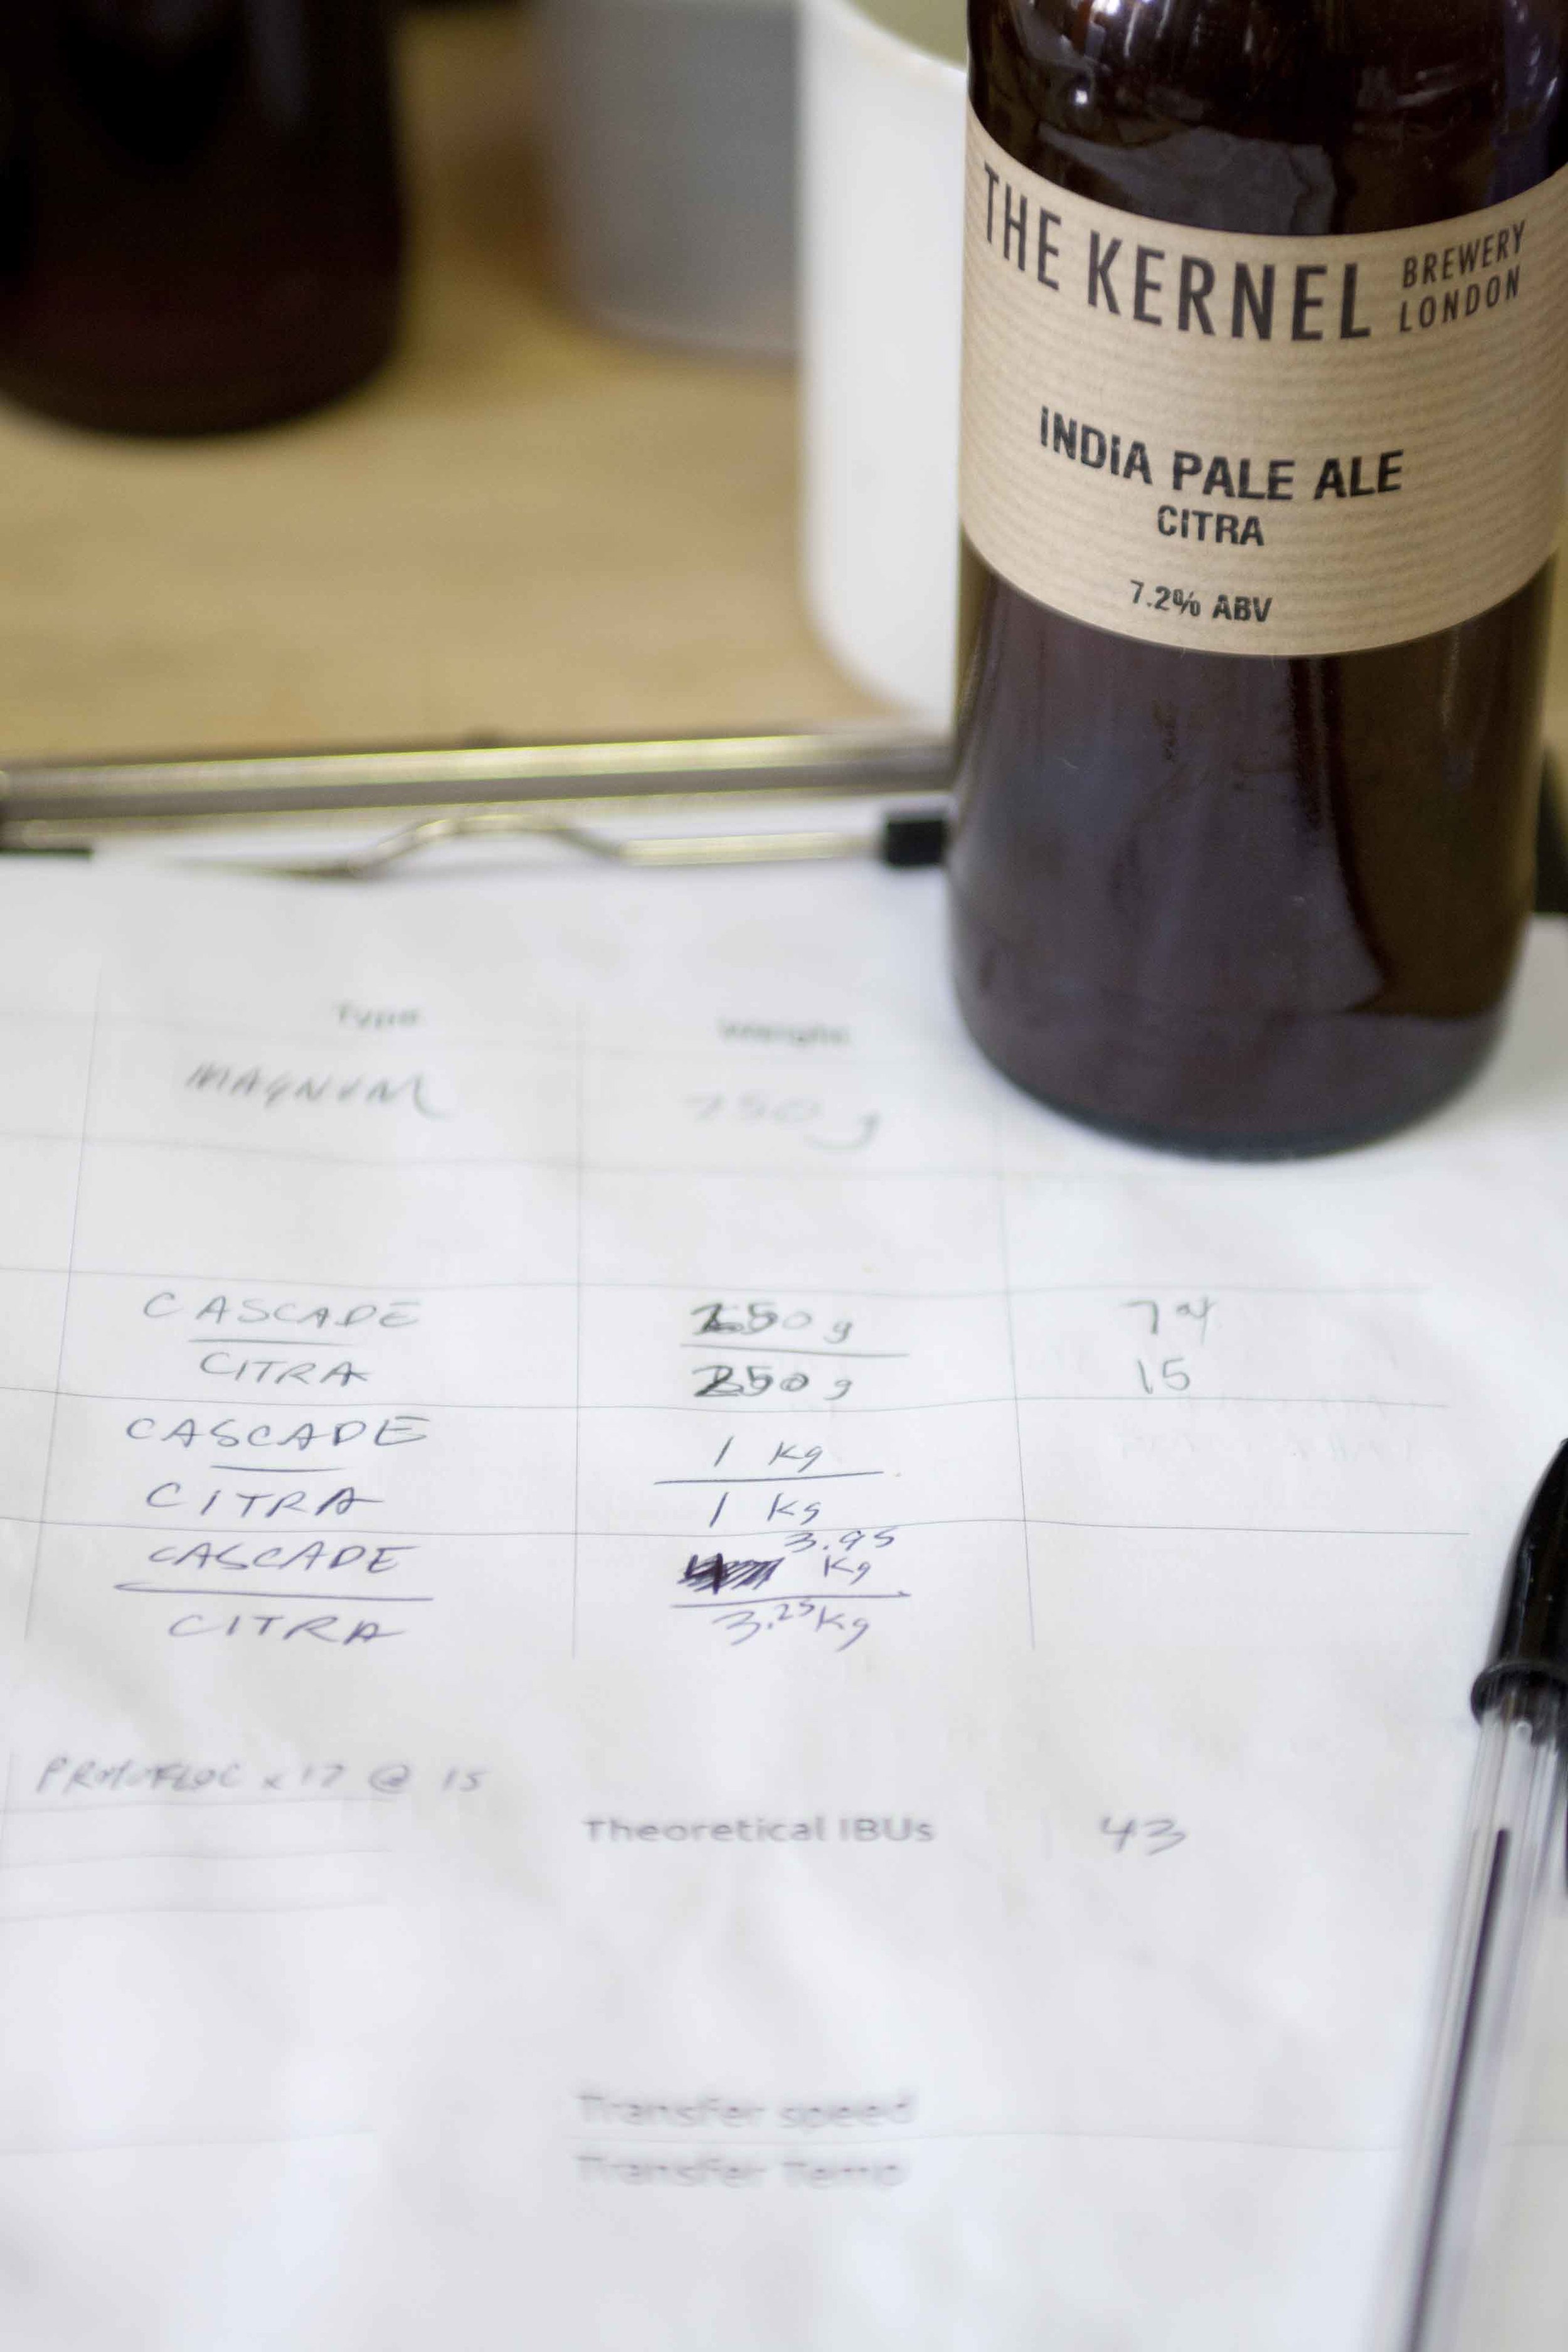 THE KERNEL BREWERY LONDON
INDIA PALE ALE
CITRA
7.2% ABV
Type Weight
MAGNUM 750 g
CASCADE 50 g
CITRA 250 g 15
CASCADE 1 Kg
CITRA 1 Kg
3.95
CASCADE Kg
CITRA 3.25 Kg
x 17 @ 15
Theoretical IBUs 43
Transfer speed
Transfer Temp